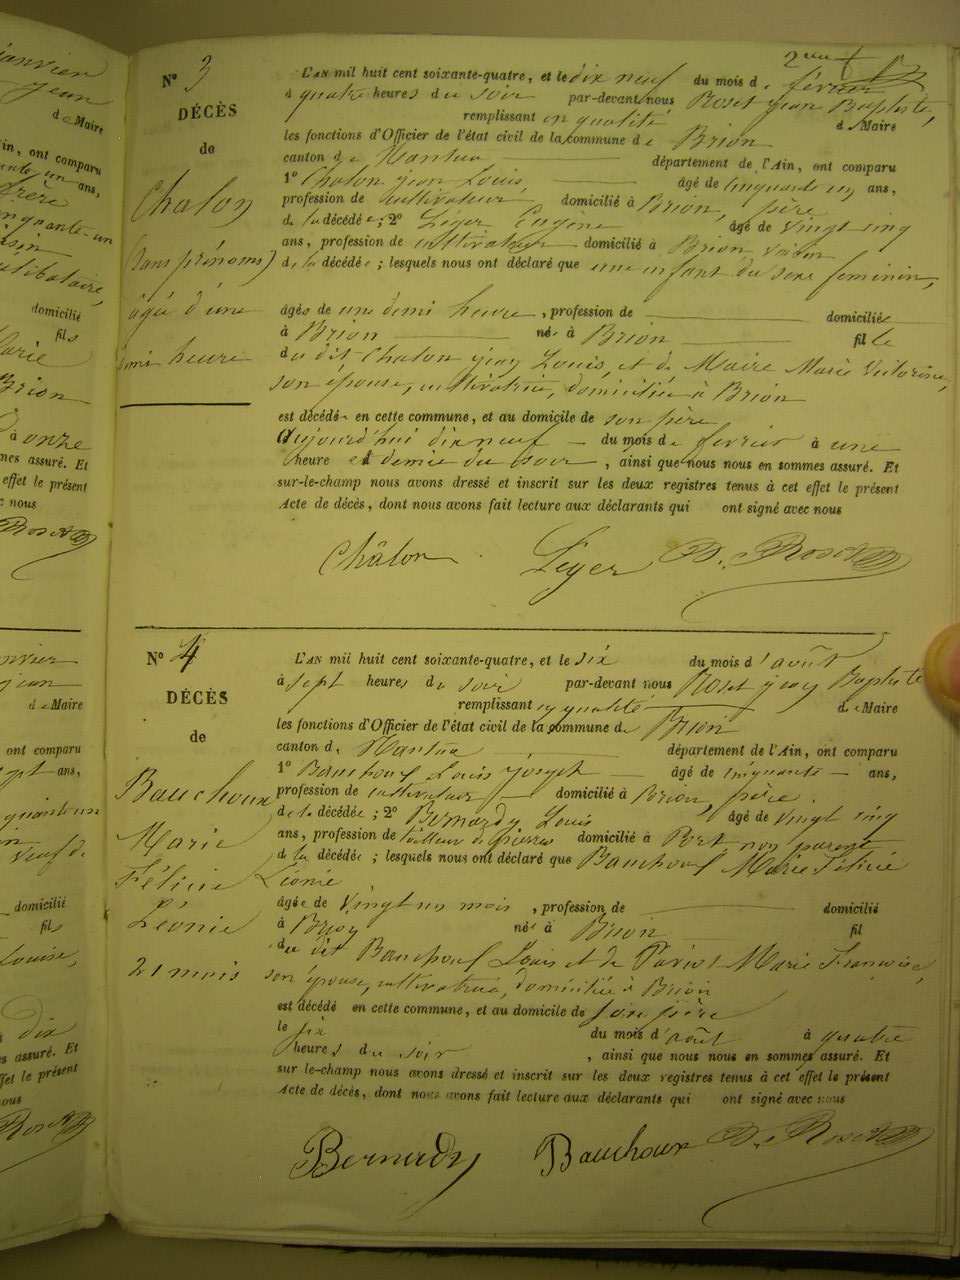 2me f
N° 3
DÉCÈS
de
Chalon
(sans prénoms)
âgée d'une
demi heure
L'AN mil huit cent soixante-quatre, et le dix neuf du mois de février
à quatre heures du soir par-devant nous Roset jean Baptiste,
remplissant en qualité de Maire
les fonctions d'Officier de l'état civil de la commune de Brion
canton de Nantua département de l'Ain, ont comparu
1° Chalon jean Louis, âgé de cinquante un ans,
profession de cultivateur domicilié à Brion, père
de la décédée; 2° Léger Eugène âgé de vingt cinq
ans, profession de cultivateur domicilié à Brion voisin
de la décédée; lesquels nous ont déclaré que une enfant du sexe feminin,
âgée de une demi heure, profession de domiciliée
à Brion née à Brion fille
du dit Chalon jean Louis, et de Maire Marie Victorine,
son épouse, cultivatrice, domiciliée à Brion
est décédée en cette commune, et au domicile de son père
aujourd'hui dix neuf du mois de février à une
heure et demie du soir, ainsi que nous nous en sommes assuré. Et
sur-le-champ nous avons dressé et inscrit sur les deux registres tenus à cet effet le présent
Acte de décès, dont nous avons fait lecture aux déclarants qui ont signé avec nous
Châlon Léger B. Roset
N° 4
DÉCÈS
de
Bauchoux
Marie
Félicie
Léonie
21 mois
L'AN mil huit cent soixante-quatre, et le six du mois d'août
à sept heures du soir par-devant nous Roset jean Baptiste
remplissant en qualité de Maire
les fonctions d'Officier de l'état civil de la commune de Brion
canton de Nantua département de l'Ain, ont comparu
1° Bauchoux Louis joseph âgé de cinquante ans,
profession de cultivateur domicilié à Brion, père.
de la décédée; 2° Bernardy Louis âgé de vingt cinq
ans, profession de tailleur de pierres domicilié à Port non parent
de la décédée; lesquels nous ont déclaré que Bauchoux Marie Félicie
Léonie
âgée de vingt un mois, profession de domicilié
à Brion née à Brion fil
du dit Bauchoux Louis et de Pariot Marie Françoise,
son épouse, cultivatrice, domiciliée à Brion
est décédé en cette commune, et au domicile de son père
le six du mois d'août à quatre
heures du soir, ainsi que nous nous en sommes assuré. Et
sur le-champ nous avons dressé et inscrit sur les deux registres tenus à cet effet le présent
Acte de décès, dont nous avons fait lecture aux déclarants qui ont signé avec nous
Bernardy Bauchoux B. Roset